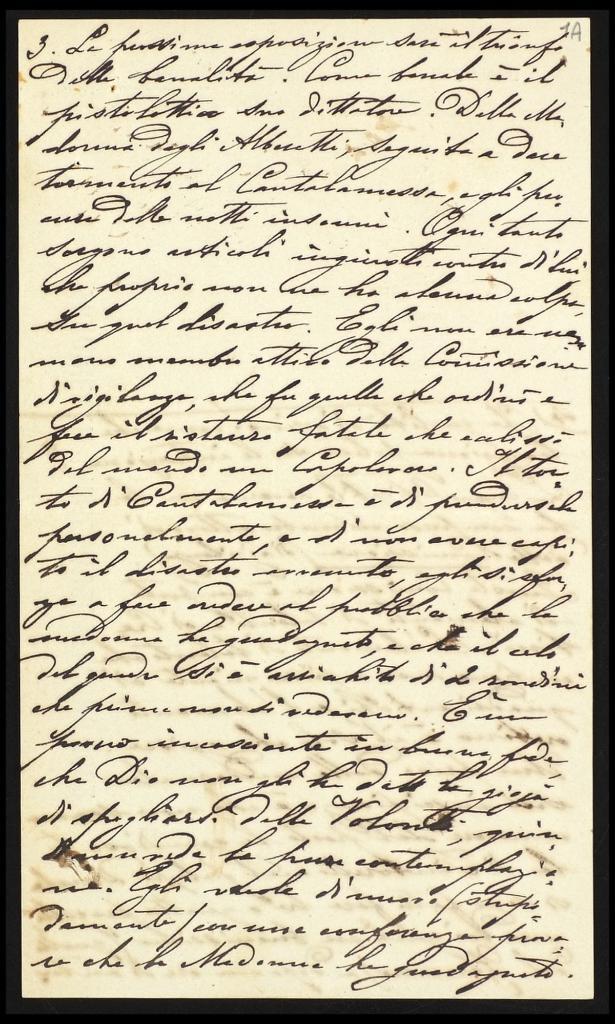 1A
3. La prossima esposizione sarà il trionfo
della banalità. Come banale è il
pistolottico suo dittatore. Della Ma,
donna degli Alberetti, seguita a dare
tormento al Cantalamessa, e gli pro,
cura delle notti insonni. Ogni tanto
sorgono articoli ingiusti contro di lui
che proprio non ne ha alcuna colpa,
su quel disastro. Egli non era nep,
meno membro attivo della Comissione
di vigilanza, che fu quella che ordinò e
fece il ristauro fatale che eclissò
dal mondo un Capolavoro. Il tor,
to di Cantalamessa è di prendersela
personalmente, e di non avere capi,
to il disastro avvenuto, egli si sfor,
za a fare credere al pubblico che la
madonna ha guadagnato, e che il cielo
del quadro si è arrichito di 2 rondini
che prima non si vedevano. È un
povero incosciente in buona fede,
che Dio non gli ha dato la gioja
di spogliarsi della Volontà, quin
non vede la pura contemplazio
ne. Egli vuole di nuovo (stupi
damente) con una conferenza prova,
re che la Madonna ha guadagnato.